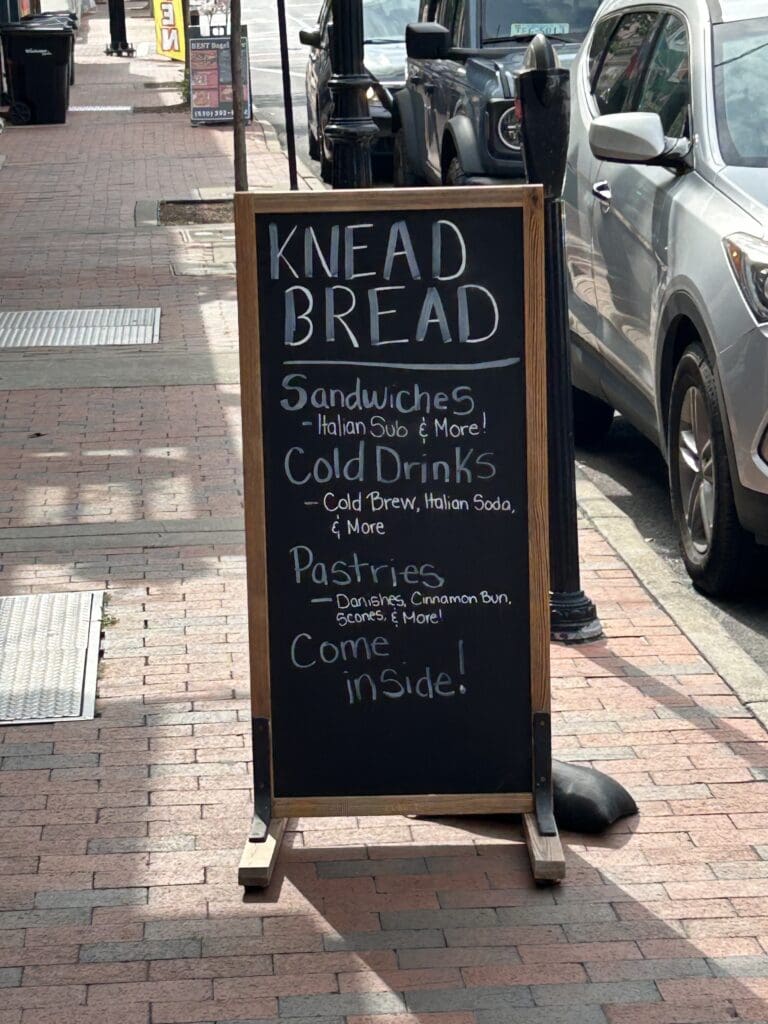 KNEAD
BREAD
Sandwiches
- Italian Sub & More!
Cold Drinks
- Cold Brew, Italian Soda,
& More
Pastries
- Danishes, Cinnamon Bun,
Scones, & More!
Come
inside!
BEST Bagel